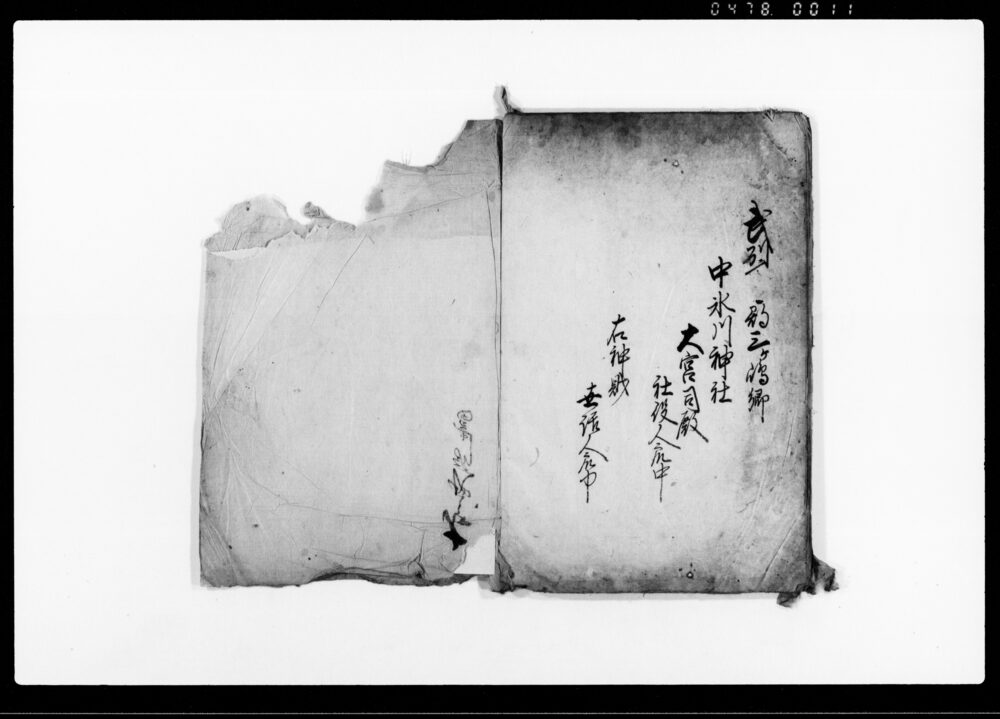 0478. 0011
武州 三ヶ嶋郷
中氷川神社
大宮司殿
社役人衆中
右神戝
世話人衆中